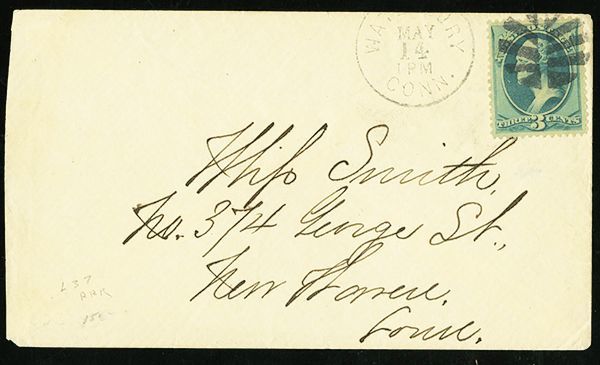 WATERBURY
MAY
14
1 PM
CONN.
THREE 3 CENTS
Miss Smith,
No. 374 George St.,
New Haven.
Conn.
L37